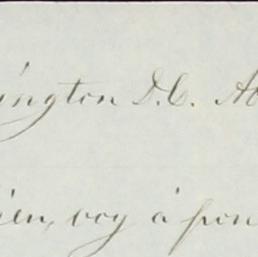 ington D.C. Ab
ien, voy á pon